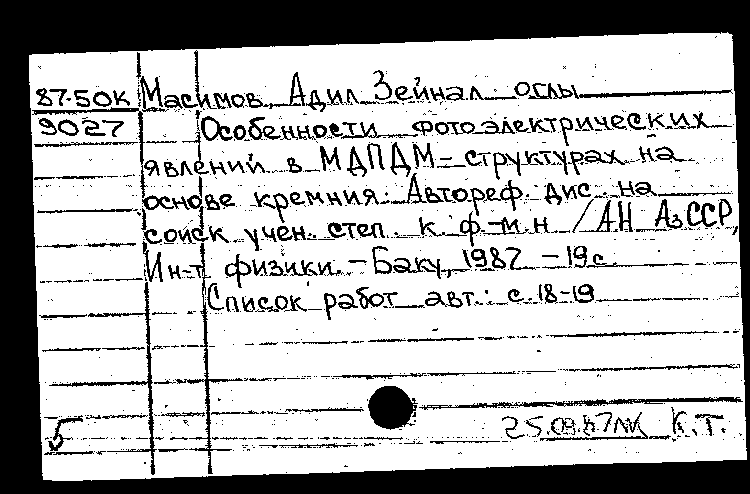 87-50К Масимов, Адил Зейнал оглы
9027 Особенности фотоэлектрических
явлений в МДПДМ-структурах на
основе кремния: Автореф. дис. на
соиск учен. степ. к. ф-м.н /АН АзССР,
Ин-т физики. - Баку, 1987 - 19 с.
Список работ авт.: с. 18-19
5
К.Т.